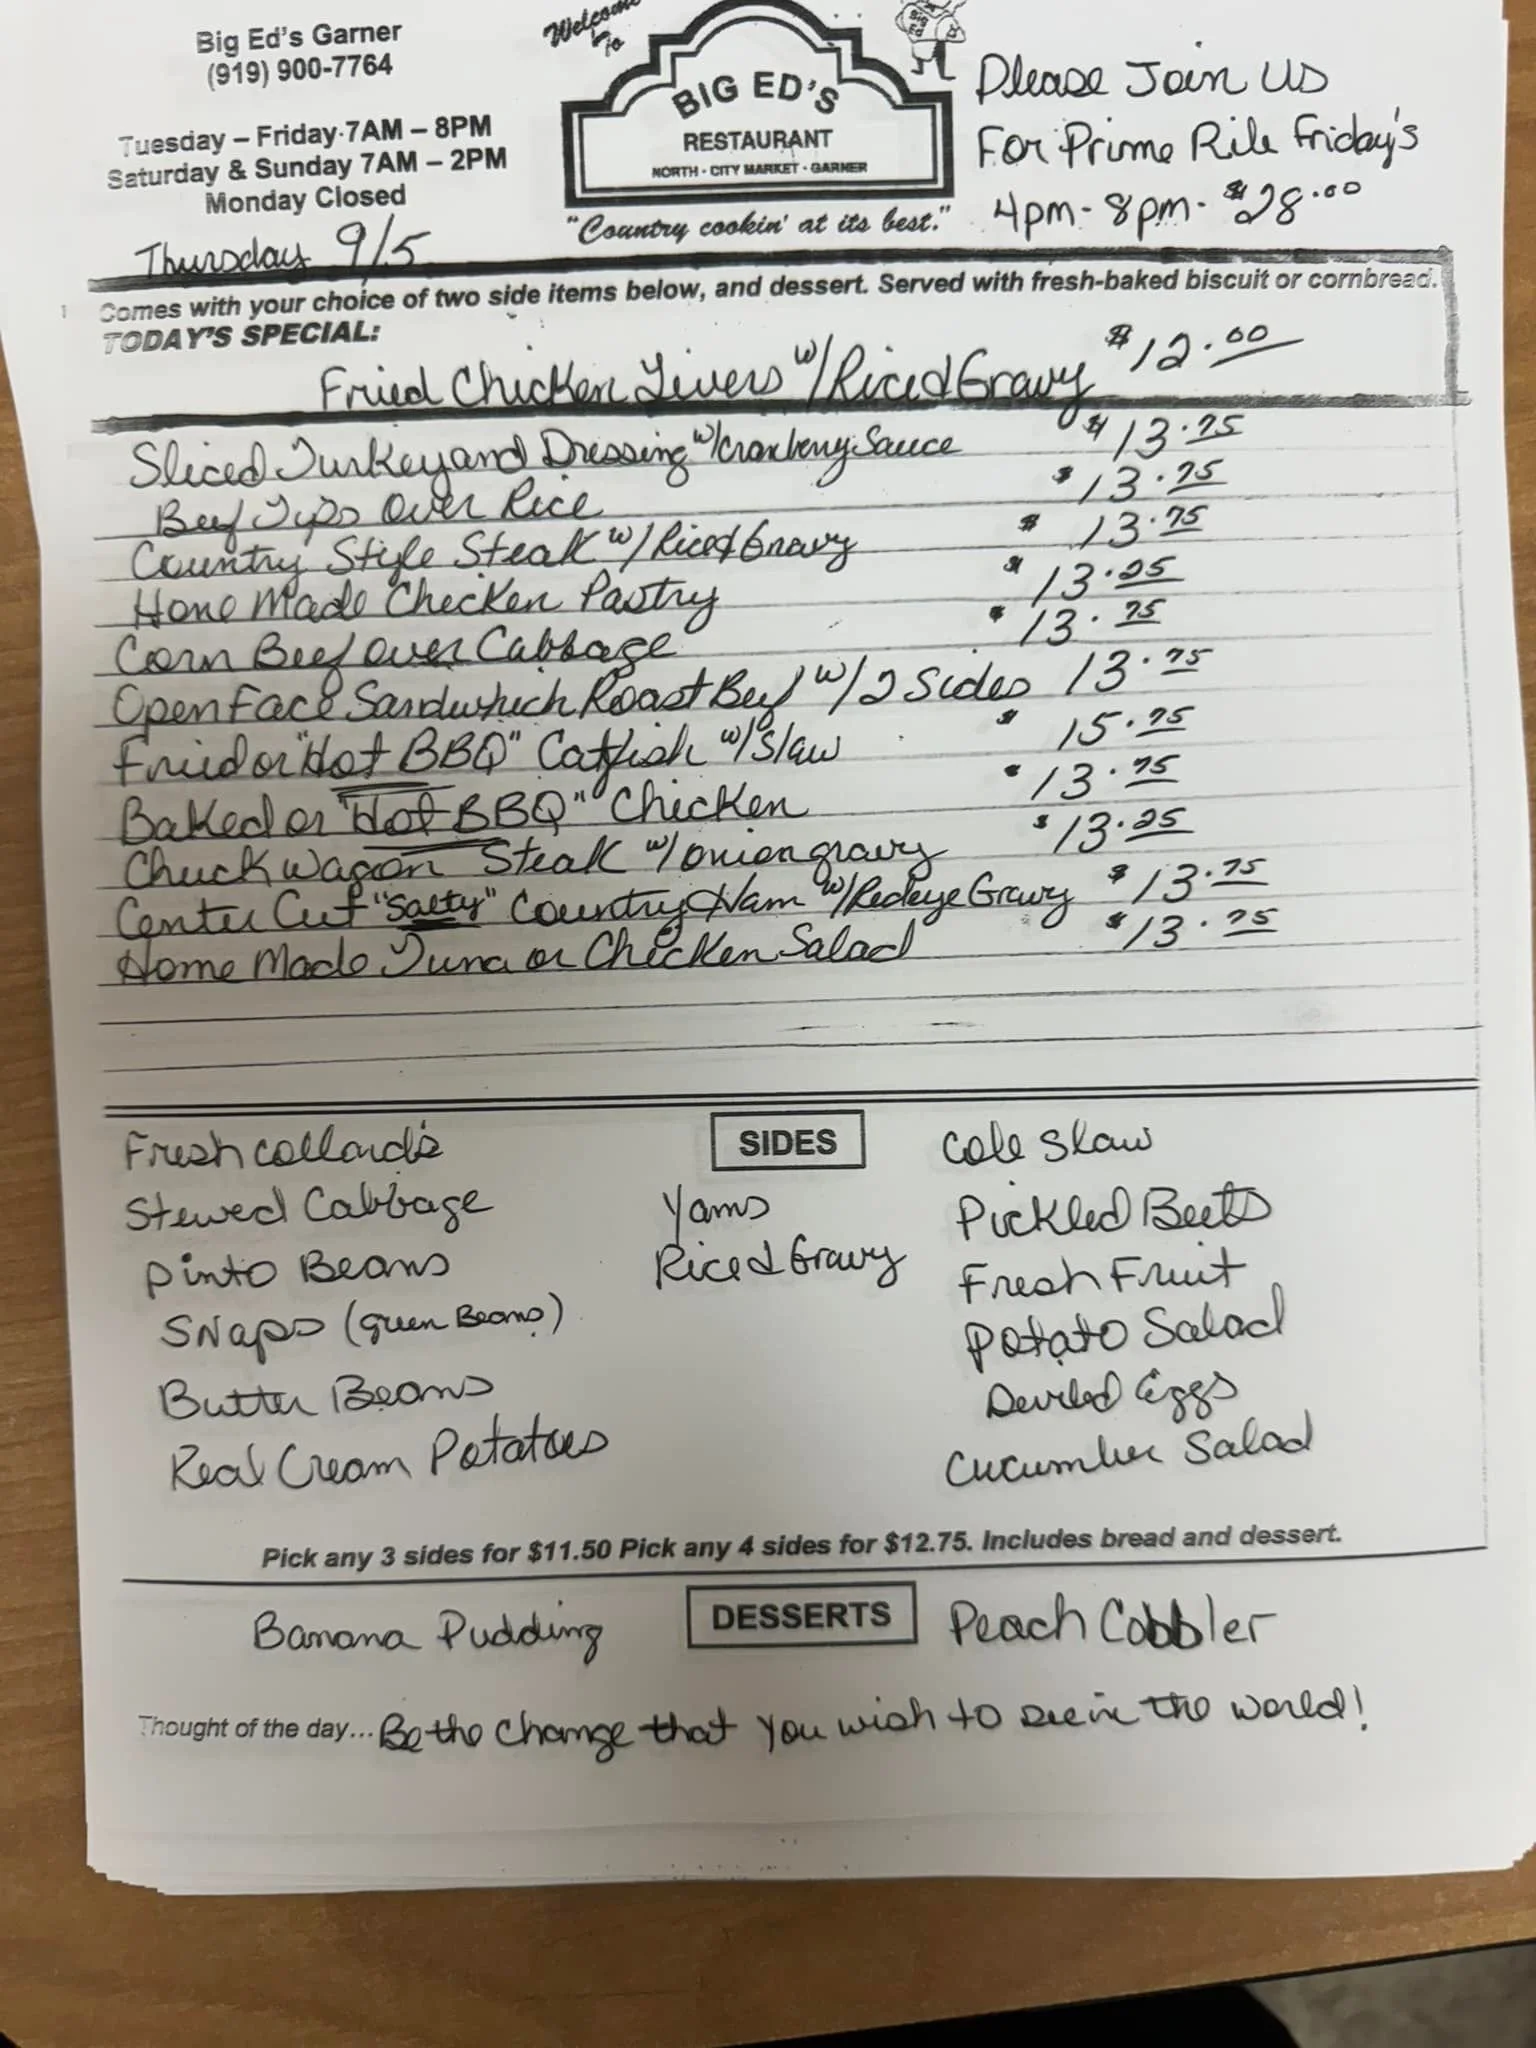 Big Ed's Garner
(919) 900-7764
Tuesday – Friday 7AM – 8PM
Saturday & Sunday 7AM – 2PM
Monday Closed
Thursday 9/5
Welcome To
BIG ED'S
RESTAURANT
NORTH - CITY MARKET - GARNER
"Country cookin' at its best."
BIG ED
Please Join Us
For Prime Rib Friday's
4pm - 8pm - $28.00
Comes with your choice of two side items below, and dessert. Served with fresh-baked biscuit or cornbread.
TODAY'S SPECIAL:
Fried Chicken Livers w/Rice & Gravy $12.00
Sliced Turkey and Dressing w/cranberry Sauce $13.75
Beef Tips Over Rice $13.75
Country Style Steak w/Rice & Gravy $13.75
Home Made Chicken Pastry $13.25
Corn Beef over Cabbage $13.75
Open Face Sandwhich Roast Beef w/2 Sides 13.75
Fried or "Hot BBQ" Catfish w/Slaw $15.75
Baked or "Hot BBQ" Chicken $13.75
Chuck wagon Steak w/onion gravy $13.25
Center Cut "Salty" Country Ham w/Redeye Gravy $13.75
Home Made Tuna or Chicken Salad $13.75
SIDES
Fresh collard's
Stewed Cabbage
Pinto Beans
SNaps (green Beans)
Butter Beans
Real Cream Potatoes
Yams
Rice & Gravy
Cole Slaw
Pickled Beets
Fresh Fruit
Potato Salad
Deviled Eggs
Cucumber Salad
Pick any 3 sides for $11.50 Pick any 4 sides for $12.75. Includes bread and dessert.
DESSERTS
Banana Pudding
Peach Cobbler
Thought of the day... Be the change that you wish to see in the world!